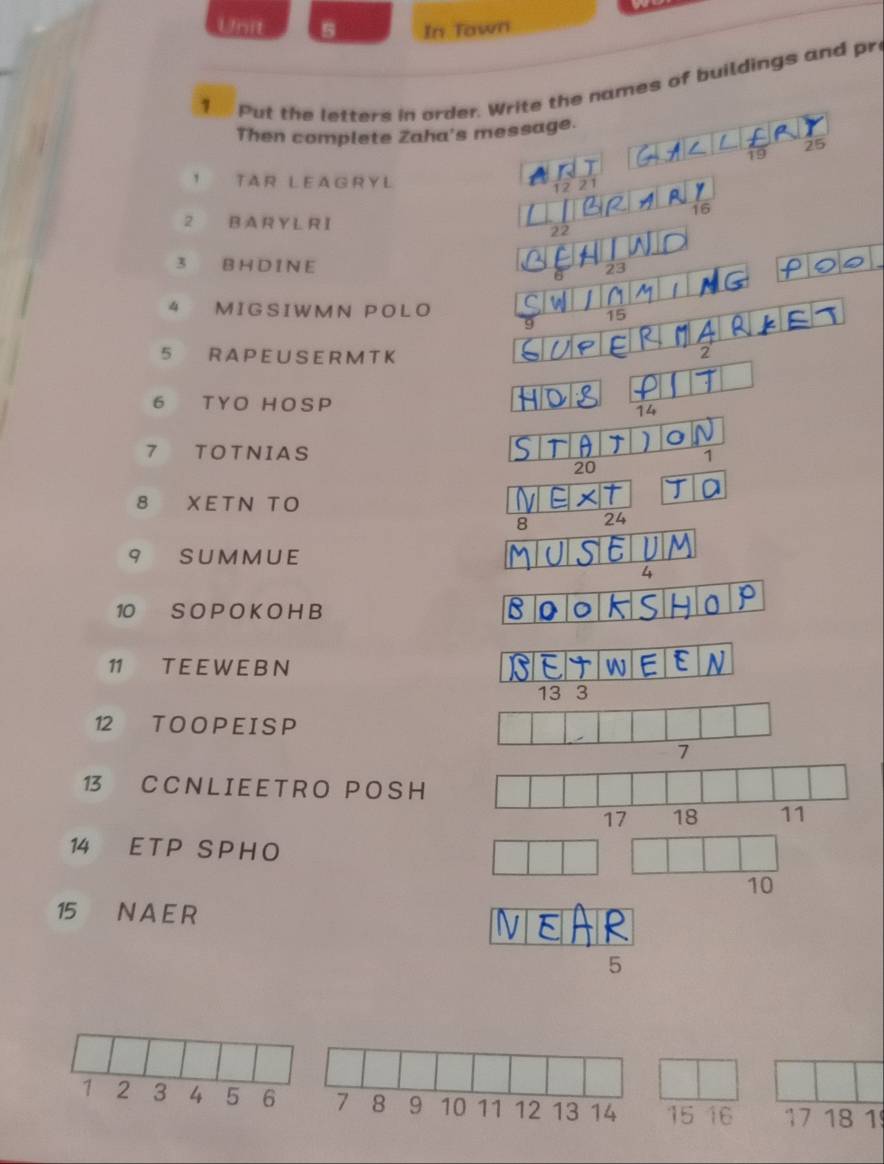 Unit 5 In Town
1 Put the letters in order. Write the names of buildings and pr
Then complete Zaha's message.
1 TAR LEAGRYL ART GALLERY
12 21 19 25
2 BARYLRI LIBRARY
22 16
3 BHDINE BEHIND
6 23
4 MIGSIWMN POLO SWIMMING POOL
9 15
5 RAPEUSERMTK SUPERMARKET
2
6 TYO HOSP HOS PIT
14
7 TOTNIAS STATION
20 1
8 XETN TO NEXT TO
8 24
9 SUMMUE MUSEUM
4
10 SOPOKOHB BOOKSHOP
11 TEEWEBN BETWEEN
13 3
12 TOOPEISP
7
13 CCNLIEETRO POSH
17 18 11
14 ETP SPHO
10
15 NAER NEAR
5
1 2 3 4 5 6 7 8 9 10 11 12 13 14 15 16 17 18 19